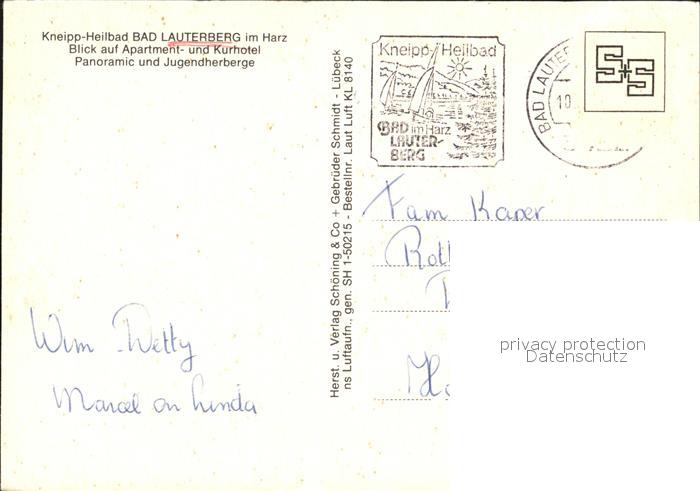 Kneipp-Heilbad BAD LAUTERBERG im Harz
Blick auf Apartment- und Kurhotel
Panoramic und Jugendherberge
Herst. u. Verlag Schöning & Co + Gebrüder Schmidt - Lübeck
ns Luftaufn., gen. SH 1-50215 - Bestellnr. Laut Luft KL 8140
Kneipp-Heilbad
BAD im Harz
LAUTER-
BERG
BAD LAUTER
10
Fam Kaper
Wim Wetty
Marcel en Linda
privacy protection
Datenschutz